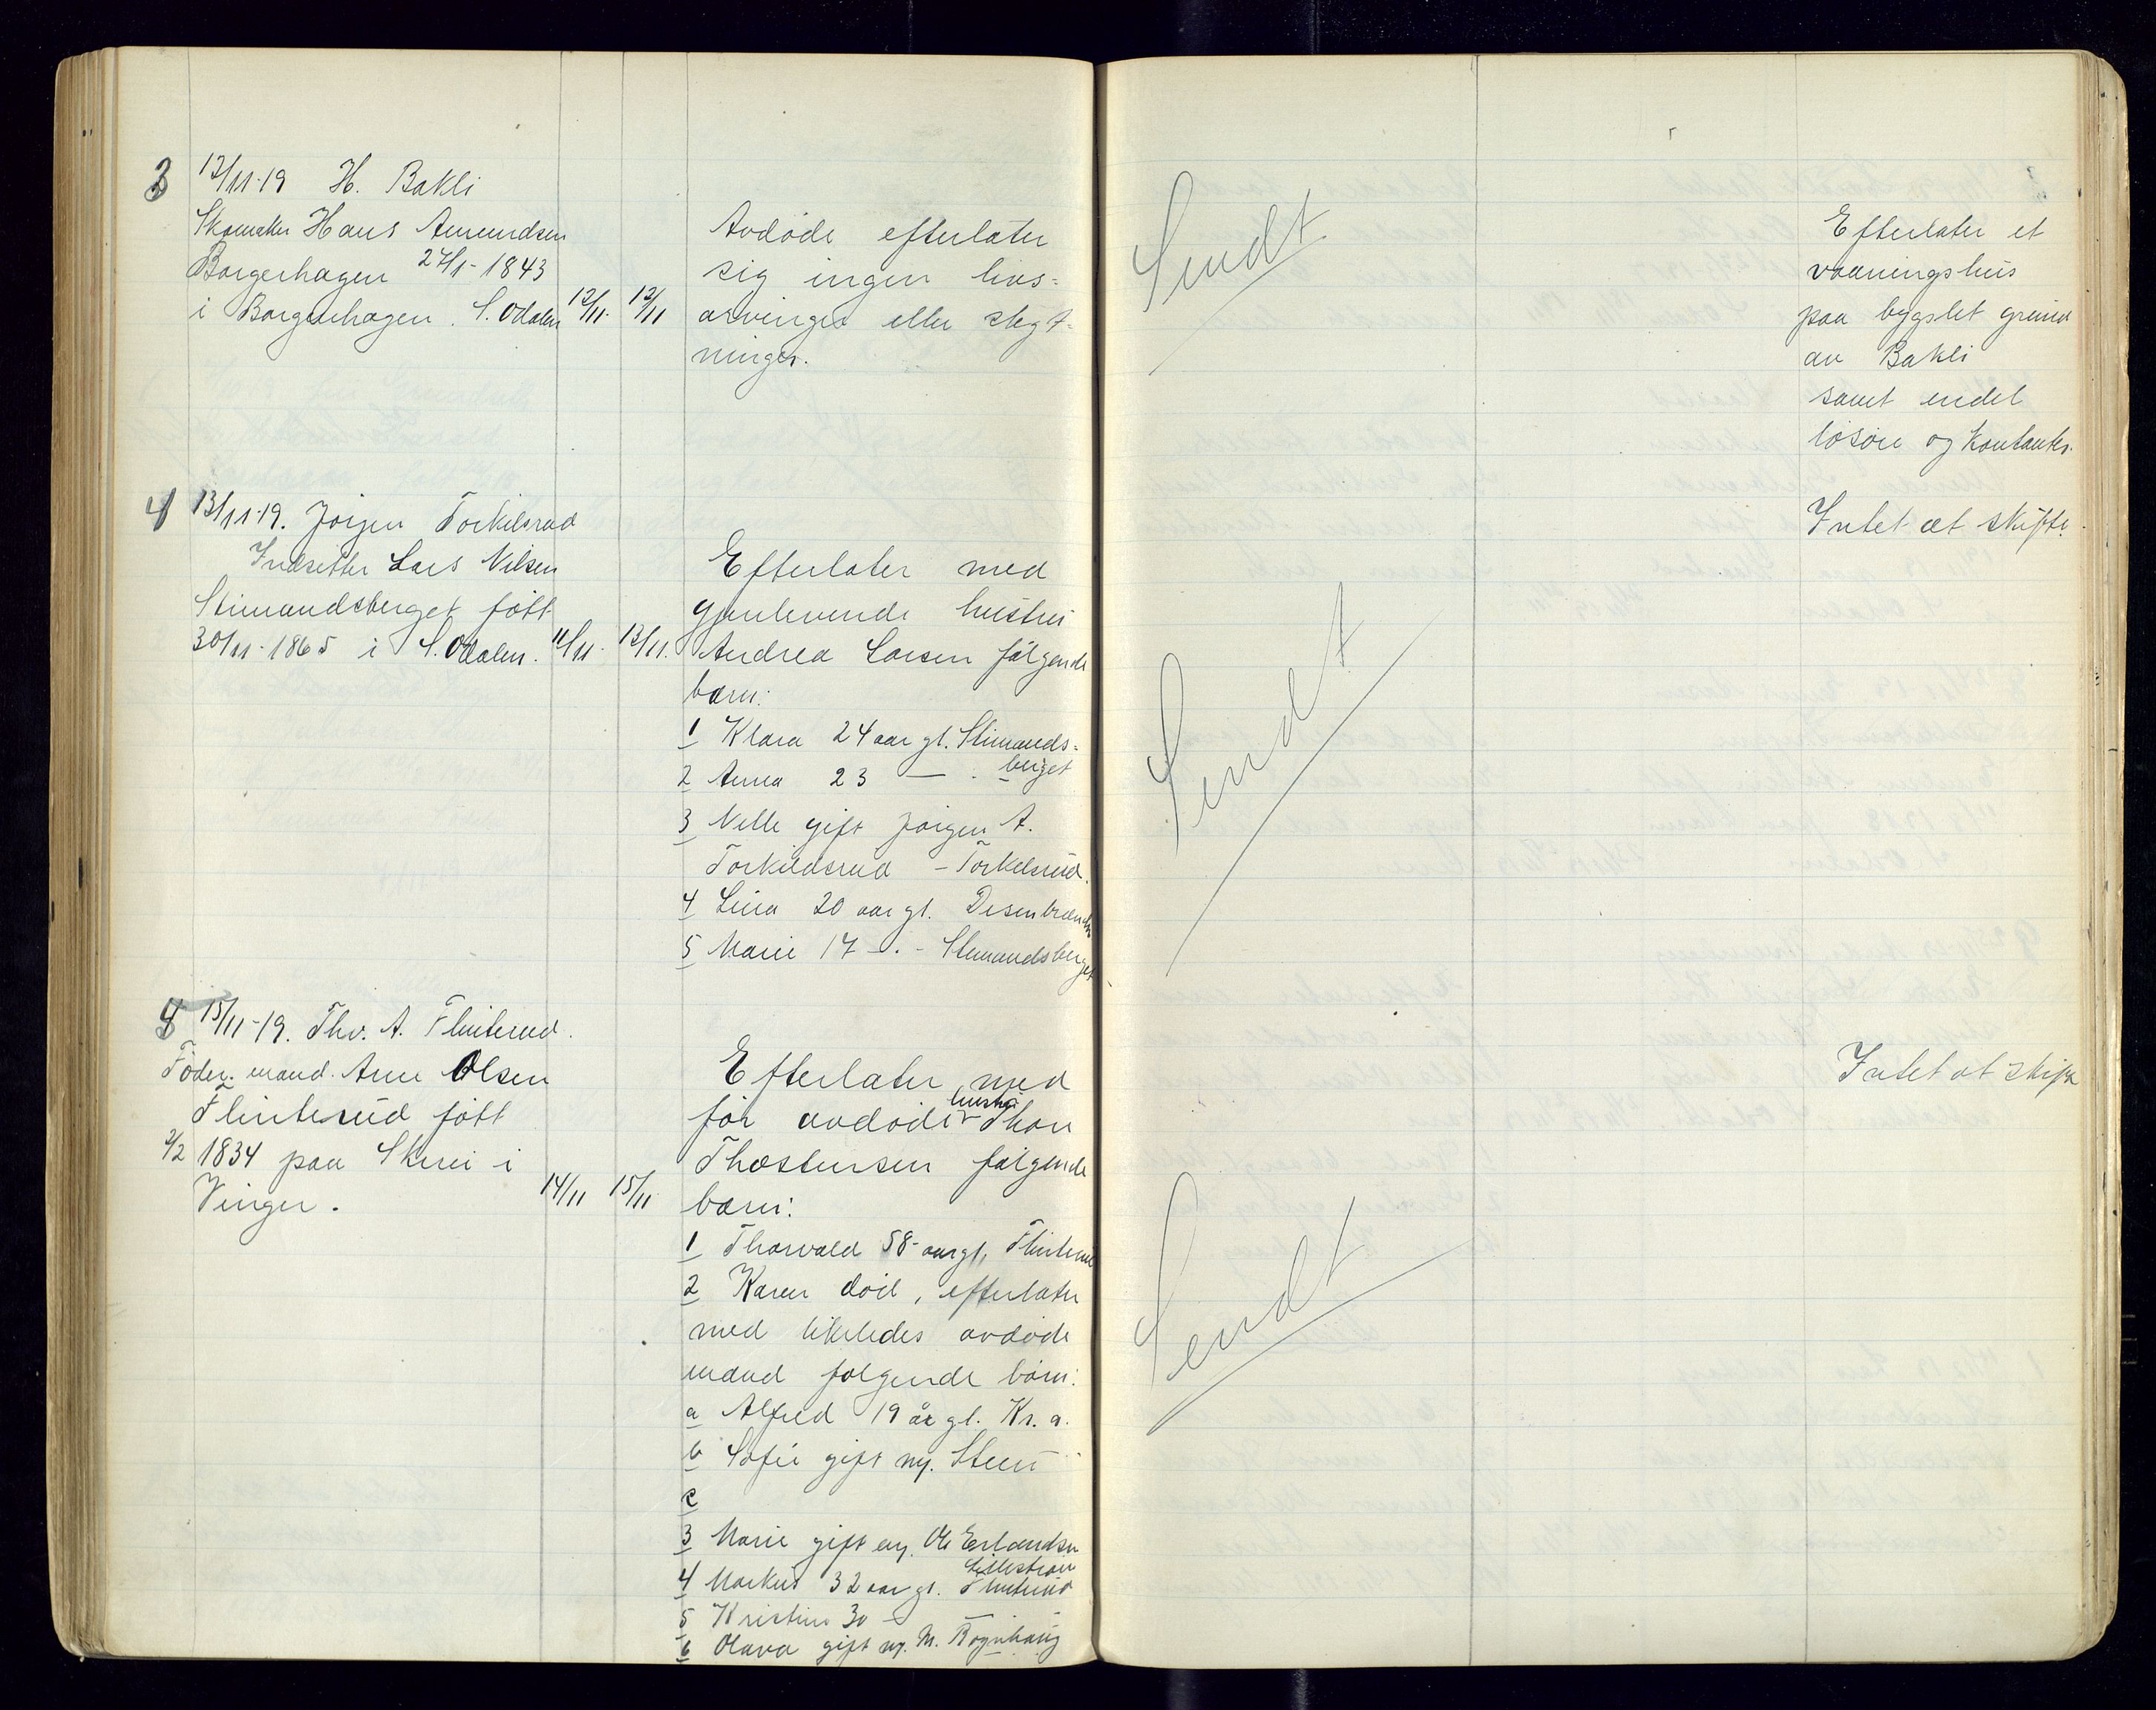 3 12/11-19 H. Bakli
Skomaker Hans Amundsen
Borgerhagen 27/1-1843
i Borgerhagen. S. Odalen 12/11. 12/11
Avdöde efterlater
sig ingen livs-
arvinger eller slegt-
ninger.
Sendt
Efterlater et
vaaningshus
paa bygslet grund
av Bakli
samt endel
lösöre og kontanter.
4 13/11-19. Jörgen Torkilsrud
Indsitter Lars Nilsen
Stimandsberget född
30/11-1865 i S. Odalen. 11/11. 13/11.
Efterlater med
gjenlevende hustru
Andrea Larsen fölgende
barn:
1 Klara 24 aar gl. Stimands-
berget
2 Anna 23 — .
3 Nelle gift Jörgen A.
Torkildsrud - Torkelsrud.
4 Lina 20 aar gl. Disenbrænden
5 Marie 17 - . - Stimandsberget
Sendt
Intet at skifte.
5 15/11-19. Thv. A. Flinterud.
Föder. mand. Arne Olsen
Flinterud född
2/2 1834 paa Skrei i
Vinger. 14/11 15/11
Efterlater med
för avdöde hustru Thon
Thostensen fölgende
barn:
1 Thorvald 58-aar gl. Flinterud
2 Karen död, efterlater
med likeledes avdöde
mand fölgende börn:
a Alfred 19 år gl. Kr. a.
b Sofie gift m. Steen
c
3 Marie gift m. Ole Erlandsen
Lilleström
4 Markus 32 aar gl. Flinterud
5 Kristine 30 -
6 Olava gift m. M. Rognhaug
Sendt
Intet at skifte